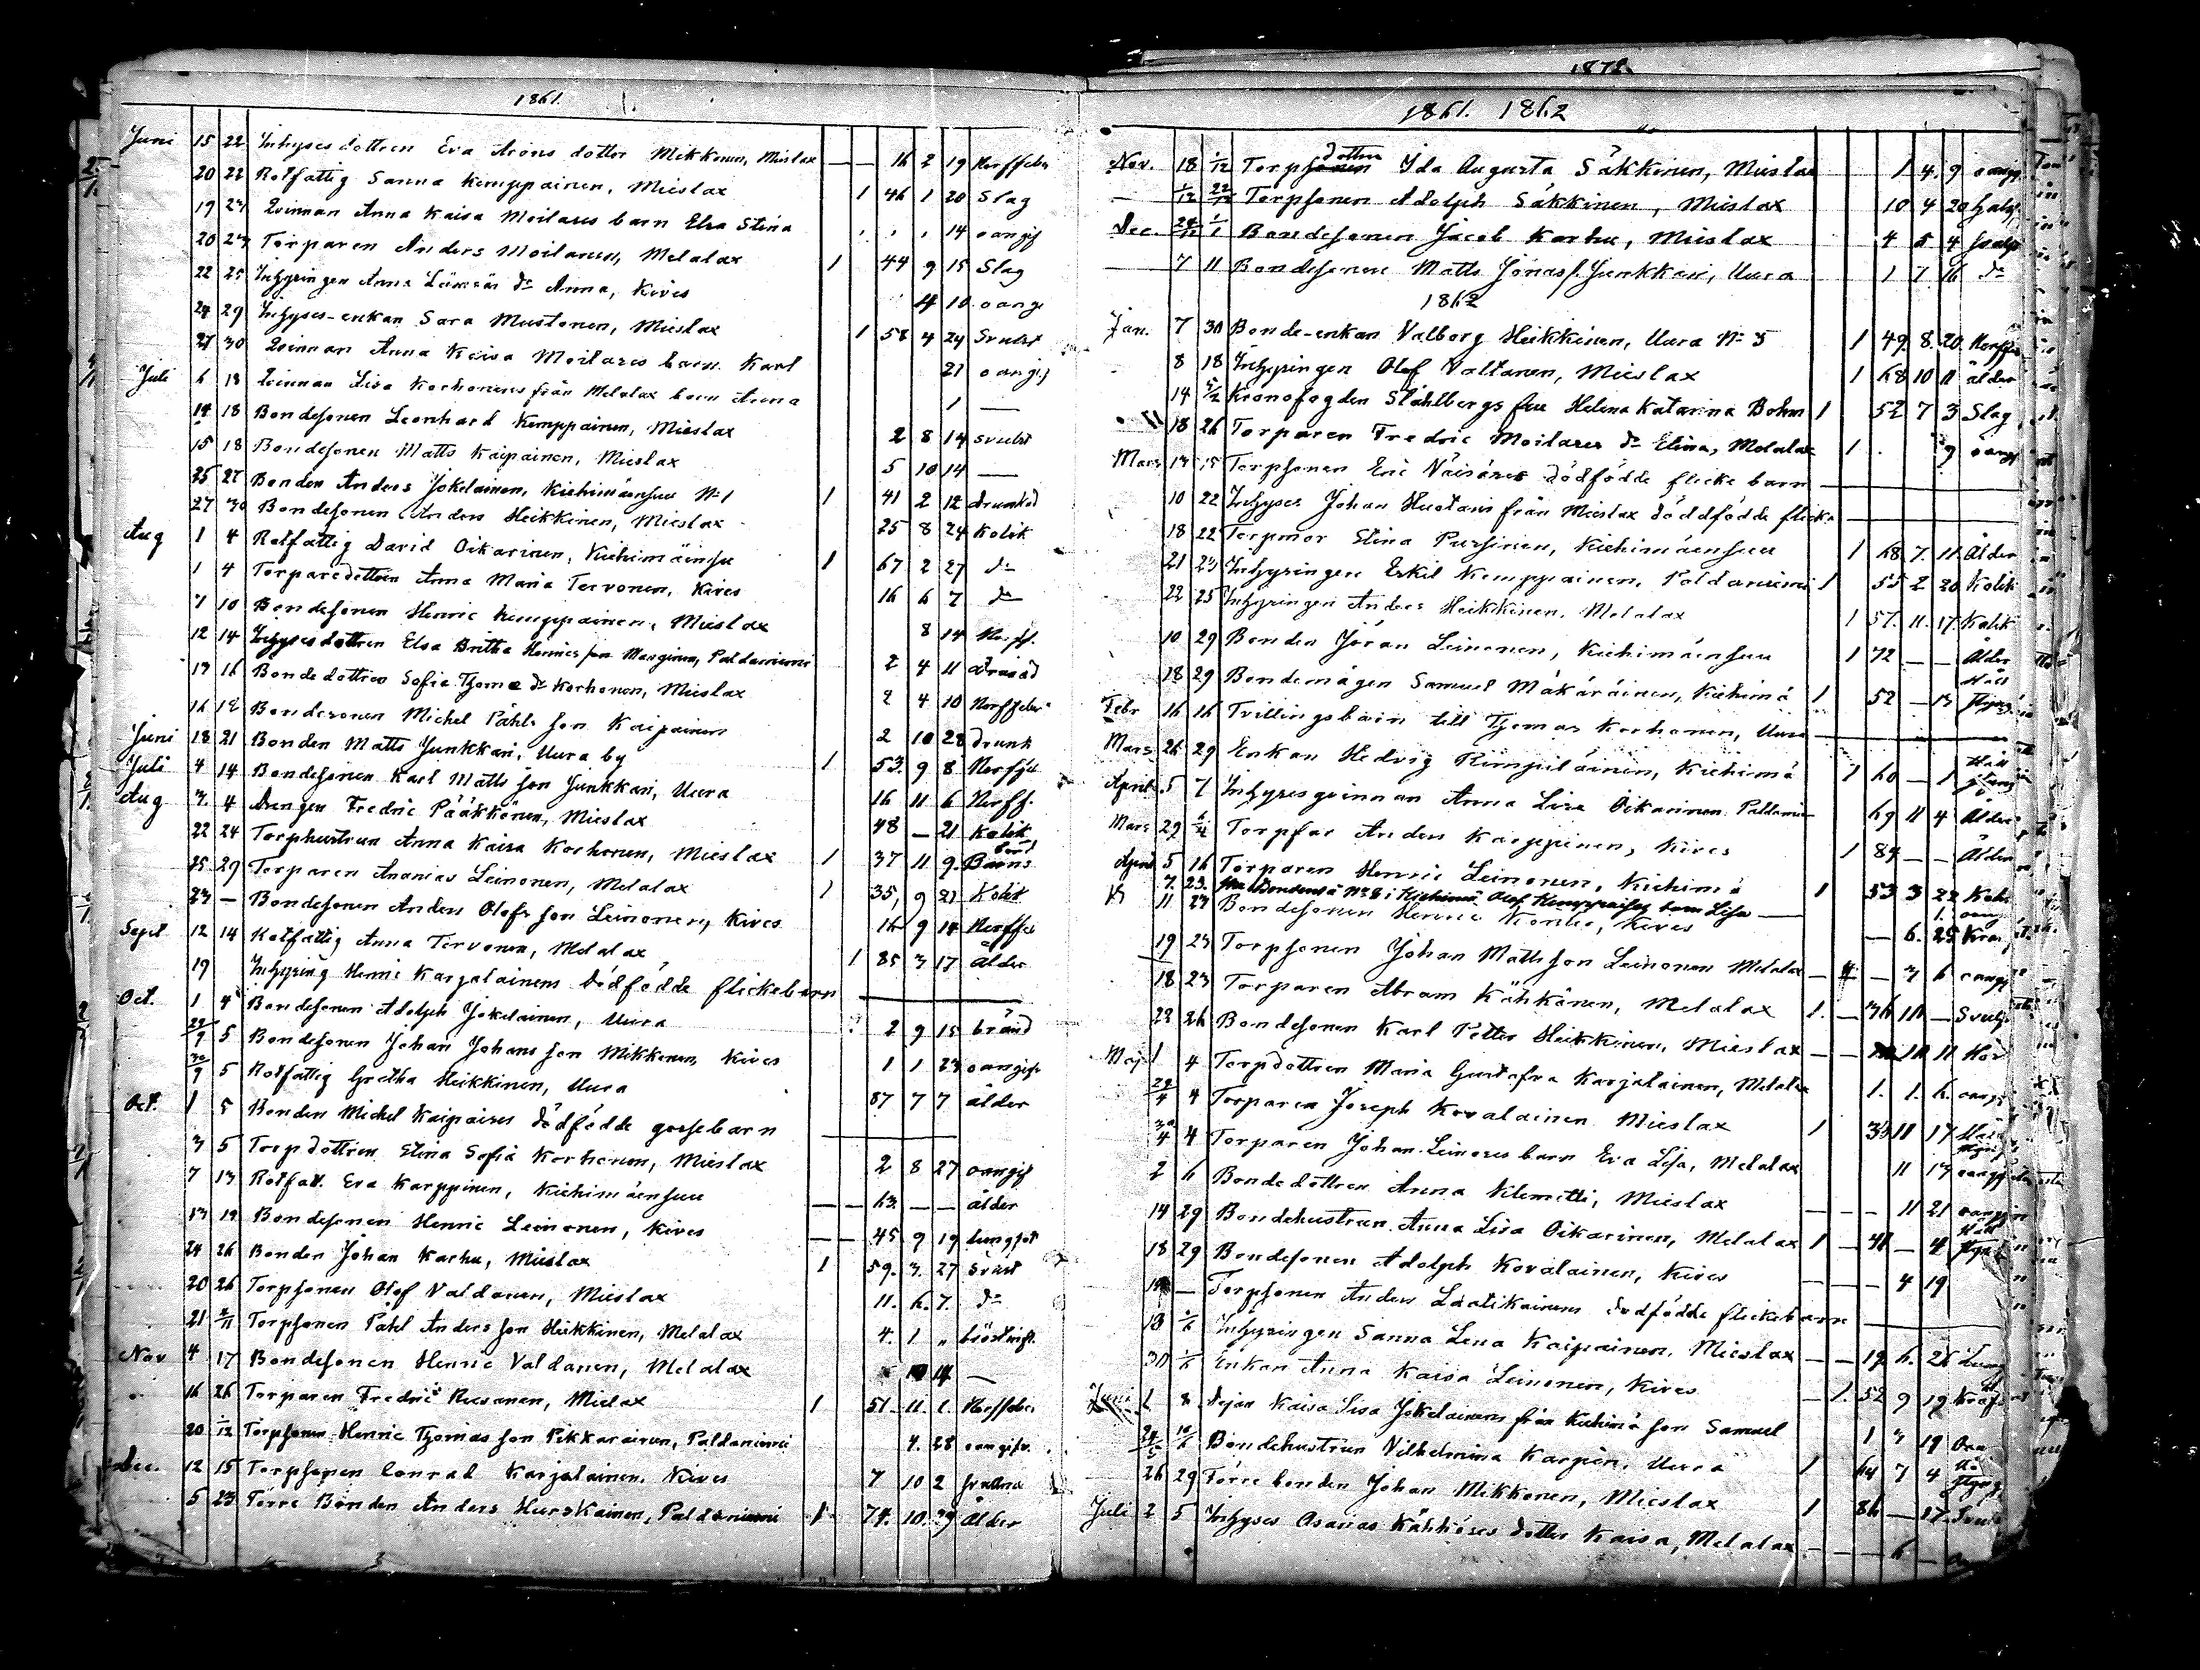 1861.
Juni 15 22 Inhyses dottren Eva Arons dotter Mikkonen, Mieslax — — 16 2 19 Nerffeber
20 22 Rotfattig Sanna Kemppainen, Mieslax 1 46 1 20 Slag
19 23 Qvinnan Anna Kaisa Moilares barn Elsa Stina 14 oangif
20 23 Torparen Anders Moilanen, Melalax 1 44 9 15 Slag
22 25 Inhysingen Anna dr Anna, Kives 4 10 oangi
24 29 Inhyses-enkan Sara Mustonen, Mieslax 1 58 4 24 Svulst
27 30 Qvinnan Anna Kaisa Moilares barn Karl 21 oangif
Juli 6 13 Qvinnan Lisa Korhonens från Melalax barn Anna 1 —
14 18 Bondesonen Leonhard Kemppainen, Mieslax 2 8 14 svulst
15 18 Bondesonen Matts Kaipainen, Mieslax 5 10 14 —
25 27 Bonden Anders Jokelainen, Kiehimäensuu No 1 1 41 2 12 drunknad
27 30 Bondesonen Anders Heikkinen, Mieslax 25 8 24 Kolik
Aug 1 4 Rotfattig David Oikarinen, Kiehimäensu 1 67 2 27 do
1 4 Torparedottren Anna Maria Tervonen, Kives 16 6 7 do
7 10 Bondesonen Henric Kemppainen, Mieslax 8 14 Nerff.
12 14 Inhyses dottren Elsa Britha Henrics son Manginen, Paldaniemi 2 4 11
13 16 Bonde dottren Sofia Thomæ dr Korhonen, Mieslax 2 4 10 Nerffeber
16 18 Bondesonen Michel Påhls son Kaipainen 2 10 28 drunk
Juni 18 21 Bonden Matts Junkkari, Uura by 1 53. 9 8 Nerffeb
Juli 4 14 Bondesonen Karl Matts son Junkkari, Uura 16 11 6 Nerff.
Aug 3. 4 Drengen Fredric Pääkkönen, Mieslax 48 — 21 Kolik
22 24 Torphustrun Anna Kaisa Korhonen, Mieslax 1 37 11 9. Barns börd
25 29 Torparen Ananias Leinonen, Melalax 1 35, 9 21 Kolik
23 — Bondesonen Anders Olofs son Leinonen, Kives 16 9 14 Nerffeb
Sept 12 14 Rotfattig Anna Tervonen, Melalax 1 85 3 17 ålder
19 Inhysing Henric Karjalainens dödfödde flickebarn
Oct. 1 4 Bondesonen Adolph Jokelainen, Uura 2 9 15 bränd
29/9 5 Bondesonen Johan Johans son Mikkonen, Kives 1 1 23 oangif
30/9 5 Rotfattig Gretha Heikkinen, Uura 87 7 7 ålder
Oct. 1 5 Bonden Michel Kaipaises dödfödde gossebarn
3 5 Torpdottren Stina Sofia Korhonen, Mieslax 2 8 27 oangif
7 13 Rotfat. Eva Karppinen, Kiehimäensuu — — 63. — — ålder
13 19 Bondesonen Henric Leinonen, Kives — — 45 9 19 lungsot
24 26 Bonden Johan Karhu, Mieslax 1 59. 3. 27 svulst
20 26 Torpsonen Olof Valdanen, Mieslax 11. 6. 7. do
21 Torpsonen Påhl Anders son Heikkinen, Melalax 4. 1 „
Nov 4 17 Bondesonen Henric Valdanen, Melalax 10 14 —
16 26 Torparen Fredric Rusanen, Mielax 1 51 11. 1. Nerffeber
20 1/12 Torpsonen Henric Thomas son Pikkarainen, Paldaniemi 4. 28 oangifv.
Dec. 12 15 Torpsonen Conrad Karjalainen, Kives 7 10 2
5 23 Förre Bonden Anders Hurskainen, Paldaniemi 1 74. 10. 29 Ålder
1872.
1861. 1862
Nov. 18 1/12 Torpdottren Ida Augusta Säkkinen, Mieslax 1 4. 9 oangif
— 1/12 22/12 Torpsonen Adolph Säkkinen, Mieslax 10 4 20
Dec. 1/1 Bondesonen Jacob Karhu, Mieslax 4 5 4
— 7 11 Bondesonen Matts Jonass. Junkkari, Uura 1 7 16 do
1862
Jan. 7 30 Bonde-enkan Valborg Heikkinen, Uura No 5 1 49. 8. 20. Nerff
8 18 Inhysingen Olof Valtanen, Mieslax 1 68 10 11 ålder
14 Kronofogden Ståhlbergs fru Helena Katarina Bohm 1 52 7 3 Slag
18 26 Torparen Fredric Moilares dr Elina, Melalax 1 9 oang
Mars 13 15 Torpsonen Eric Väisäses dödfödde flicke barn
10 22 Inhyses Johan Huotaris från Mieslax döddfödde flicke
18 22 Torpmor Stina Pursinen, Kiehimäensuu 1 68 7. 11. Ålder
21 23 Inhysingen Eskil Kemppainen, Paldaniemi 1 55 2 20 Kolik
22 25 Inhysingen Anders Heikkinen, Melalax 1 57. 11. 17. Kolik
10 29 Bonden Jöran Leinonen, Kiehimäensuu 1 72 — — Ålder
18 29 Bondemågen Samuel Mäkäräinen, Kiehimä 1 52 — 13 Håll Styng
Febr 16 16 Tvillingsbarn till Thomas Korhonen, Uura
Mars 26 29 Enkan Hedvig Rimpiläinen, Kiehimä 1 60 — 1 Håll styng
April 5 7 Inhysesqvinnan Anna Lisa Oikarinen Paldaniemi 69 11 4 Ålder
Mars 29 Torpfar Anders Karppinen, Kives 1 84 — — Ålder
April 5 16 Torparen Henric Leinonen, Kiehimä 1 53 3 22 Kolik
7. 23. No 8 i Kiehimä Olof Kemppaises barn Lisa 1. oang
11 23 Bondesonen Henric Kontio, Kives — 6. 25
19 23 Torpsonen Johan Matts son Leinonen Melalax — — 3 6 oangif
18 23 Torparen Abram Kähkönen, Melalax 1. — 36 10 —
22 26 Bondesonen Karl Petter Heikkinen, Mieslax — — 10 11
Maj 1 4 Torpdottren Maria Gustafva Karjalainen, Melalax 1. 1. 6. oang
29/4 4 Torparen Joseph Kovalainen Mieslax 1 33 11 17 Håll styng
30/4 4 Torparen Johan Leinoses barn Eva Lisa, Melalax 11 13 oangif
2 6 Bonde dottren Anna Klemetti, Mieslax — — — 11 21 oangif
14 29 Bondehustrun Anna Lisa Oikarinen, Melalax 1 — 41 — 4 Håll styng
18 29 Bondesonen Adolph Kovalainen, Kives — — — 4 19
— Torpsonen Anders Laatikainens dödfödde flickebarn
13 1/6 Inhysingen Sanna Lena Kaipainen, Mieslax — — 19 6. 26 Lung
30 1/6 Enkan Anna Kaisa Leinonen, Kives — 1. 52 9 19
Juni 1 8 Pejan Kaisa Lisa Jokelainens från Kiehimä son Samuel 1 3 19
Bondehustrun Vilhelmina Karpin, Uura 1 64 7 4 Hå styng
26 29 Förre bonden Johan Mikkonen, Mieslax 1 86 — 17
Juli 2 5 Inhyses Osanas Kähköses dotter Kaisa, Melalax — — — 6 —